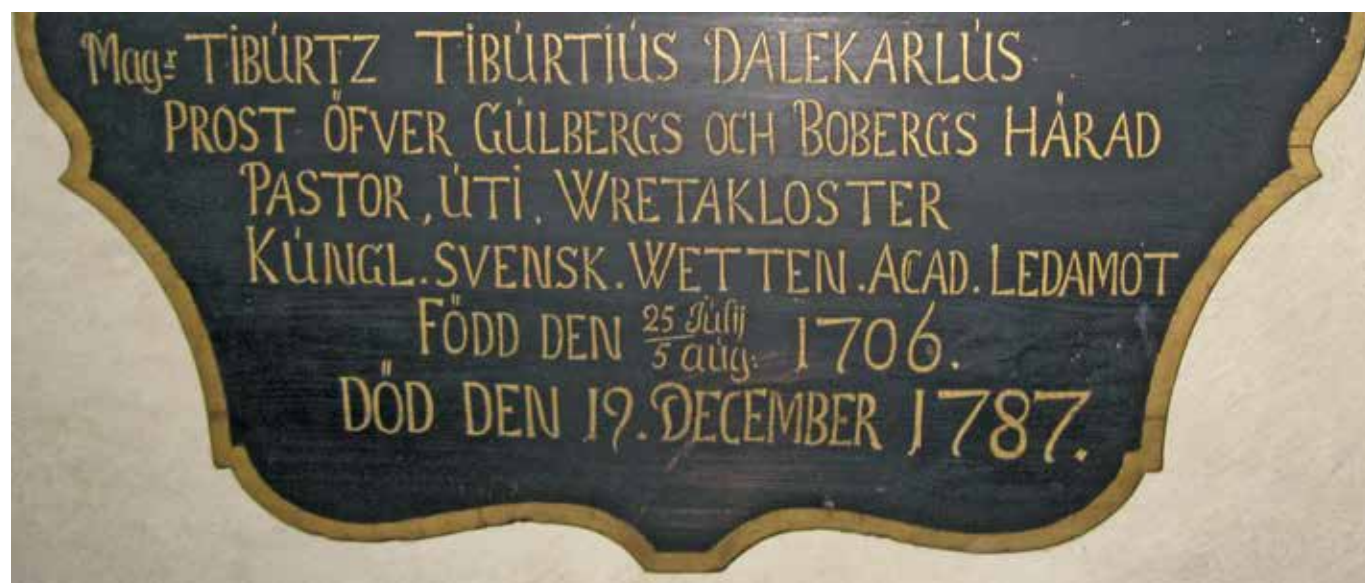 Magr TIBÚRTZ TIBÚRTIÚS DALEKARLÚS.
PROST ÖFVER GÚLBERGS OCH BOBERGS HÄRAD
PASTOR, ÚTI, WRETAKLOSTER
KÚNGL. SVENSK. WETTEN. ACAD. LEDAMOT
FÖDD DEN 25 Júlij / 5 aúg: 1706.
DÖD DEN 19. DECEMBER 1787.